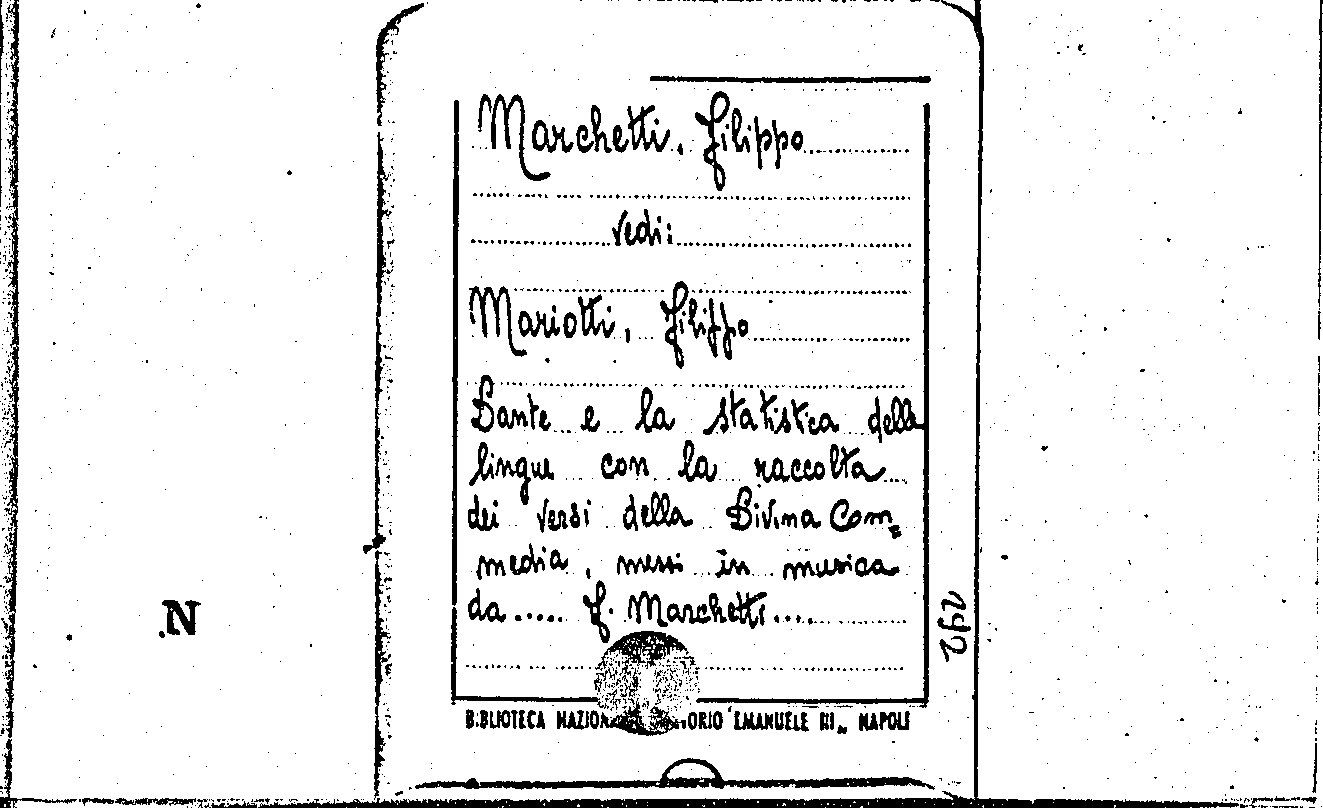 Marchetti, Filippo
vedi:
Mariotti, Filippo
Dante e la statistica delle
lingue con la raccolta
dei versi della Divina Com=
media, messi in musica
da..... F. Marchetti....
292
N
BIBLIOTECA EMANUELE III„ NAPOLI